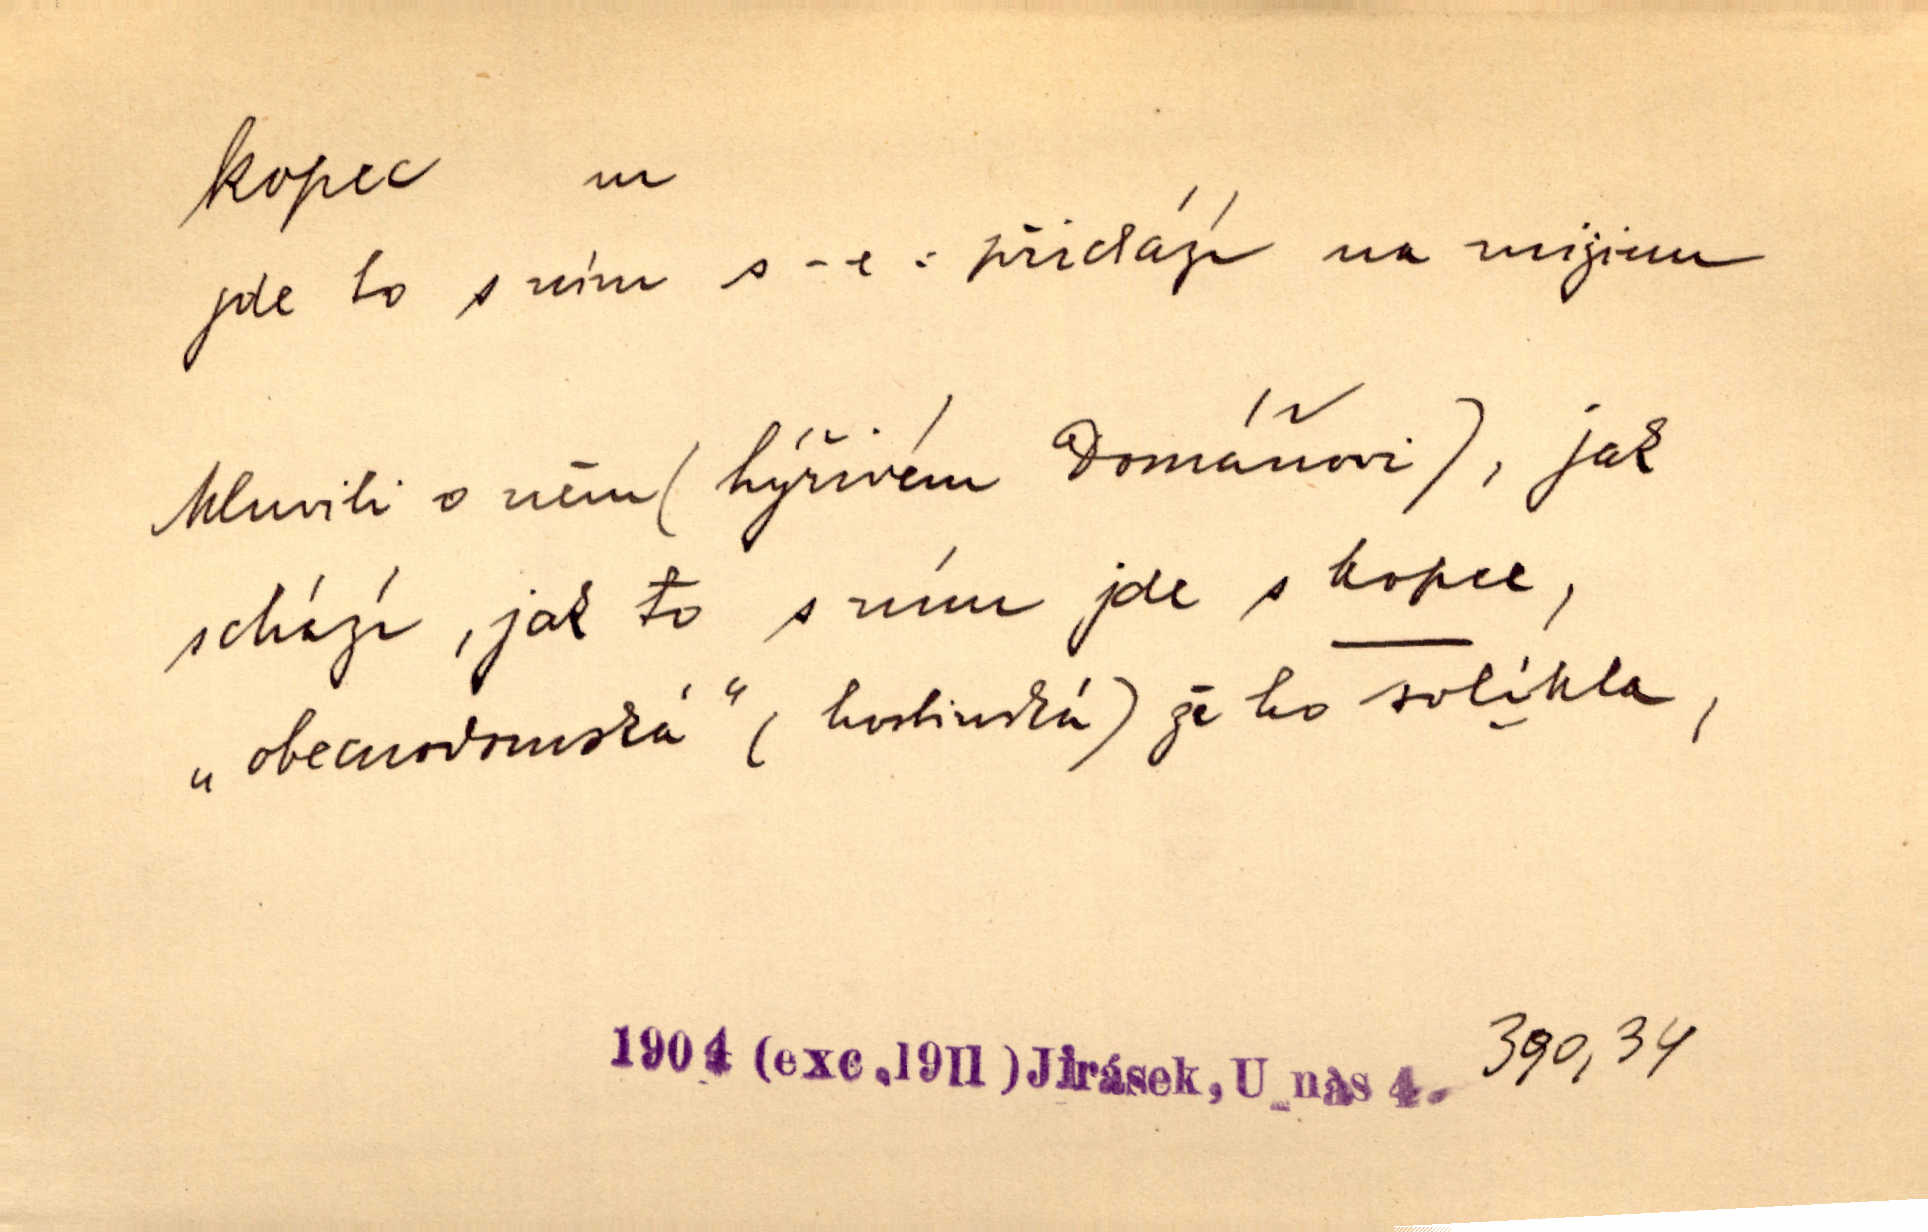 kopec m
jde to s ním s -e : přichází na mizinu
Mluvili o něm (hýřivém Domáňovi), jak
schází, jak to s ním jde s kopce,
„obecnodomská“ (hostinská) že ho solíkla,
1904 (exc. 1911) Jirásek, U nás 4. 390,34